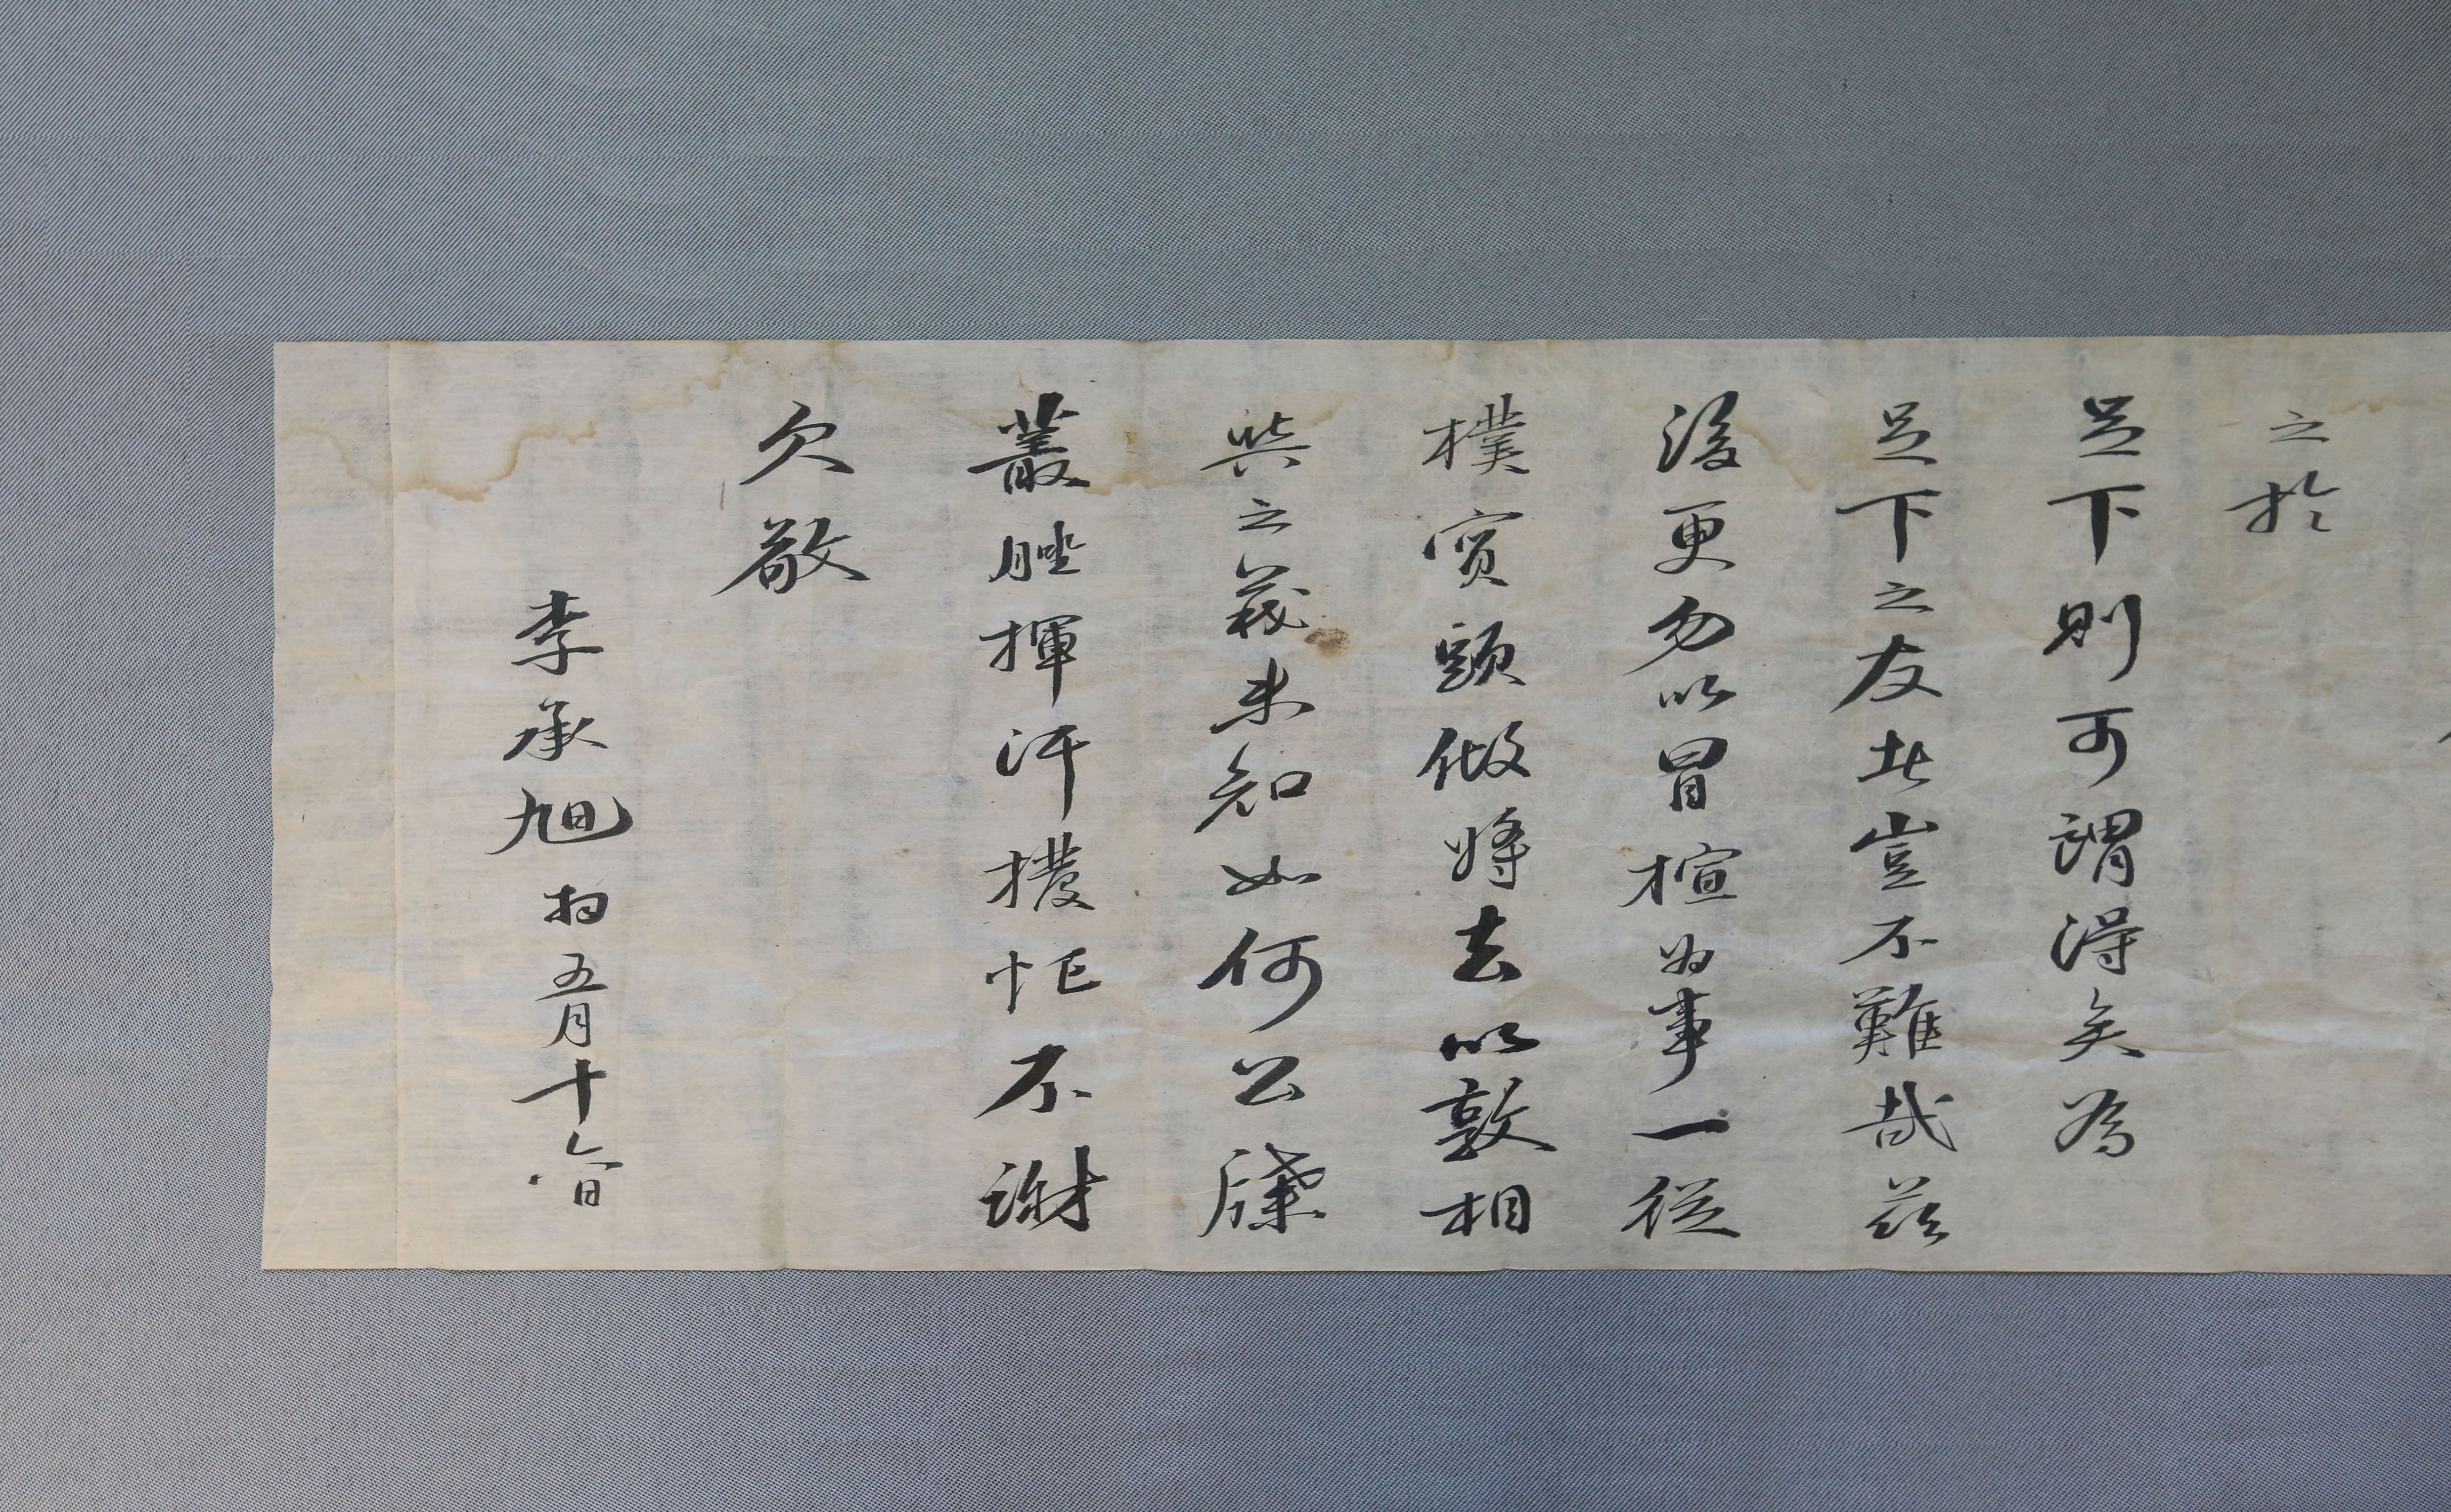 之於
足下則可謂得矣爲
足下之友者豈不難哉玆
後更勿以冒楦为事一從
樸實頭做將去以敦相
與之義未知如何公牒
叢脞揮汗撥忙不謝
欠敬
李承旭 拜 五月十六日